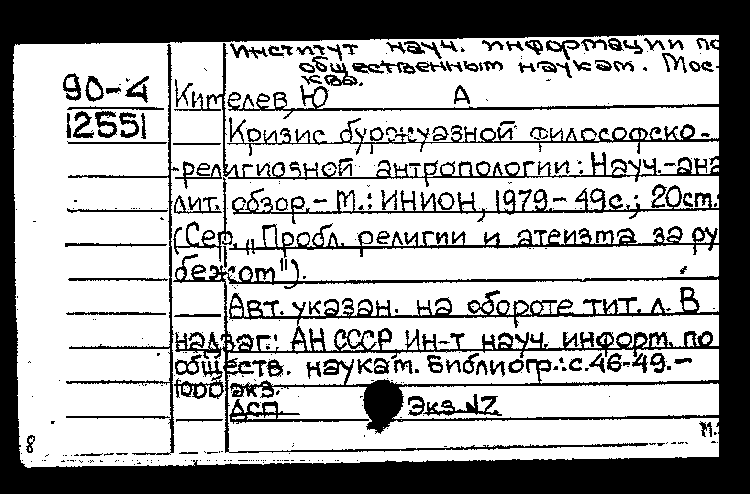 Институт науч. информации по
общественным наукам. Мос-
ква.
90-4
Кимелев, Ю А
12551
Кризис буржуазной философско-
-религиозной антропологии: Науч.-ана
лит. обзор.- М.: ИНИОН, 1979.- 49с.; 20см.
(Сер. „Пробл. религии и атеизма за ру
бежом").
Авт. указан. на обороте тит. л. В
надзаг.: АН СССР Ин-т науч. информ. по
обществ. наукам. Библиогр.: с.46-49.-
1000 экз.
ДСП. Экз. №7.
8